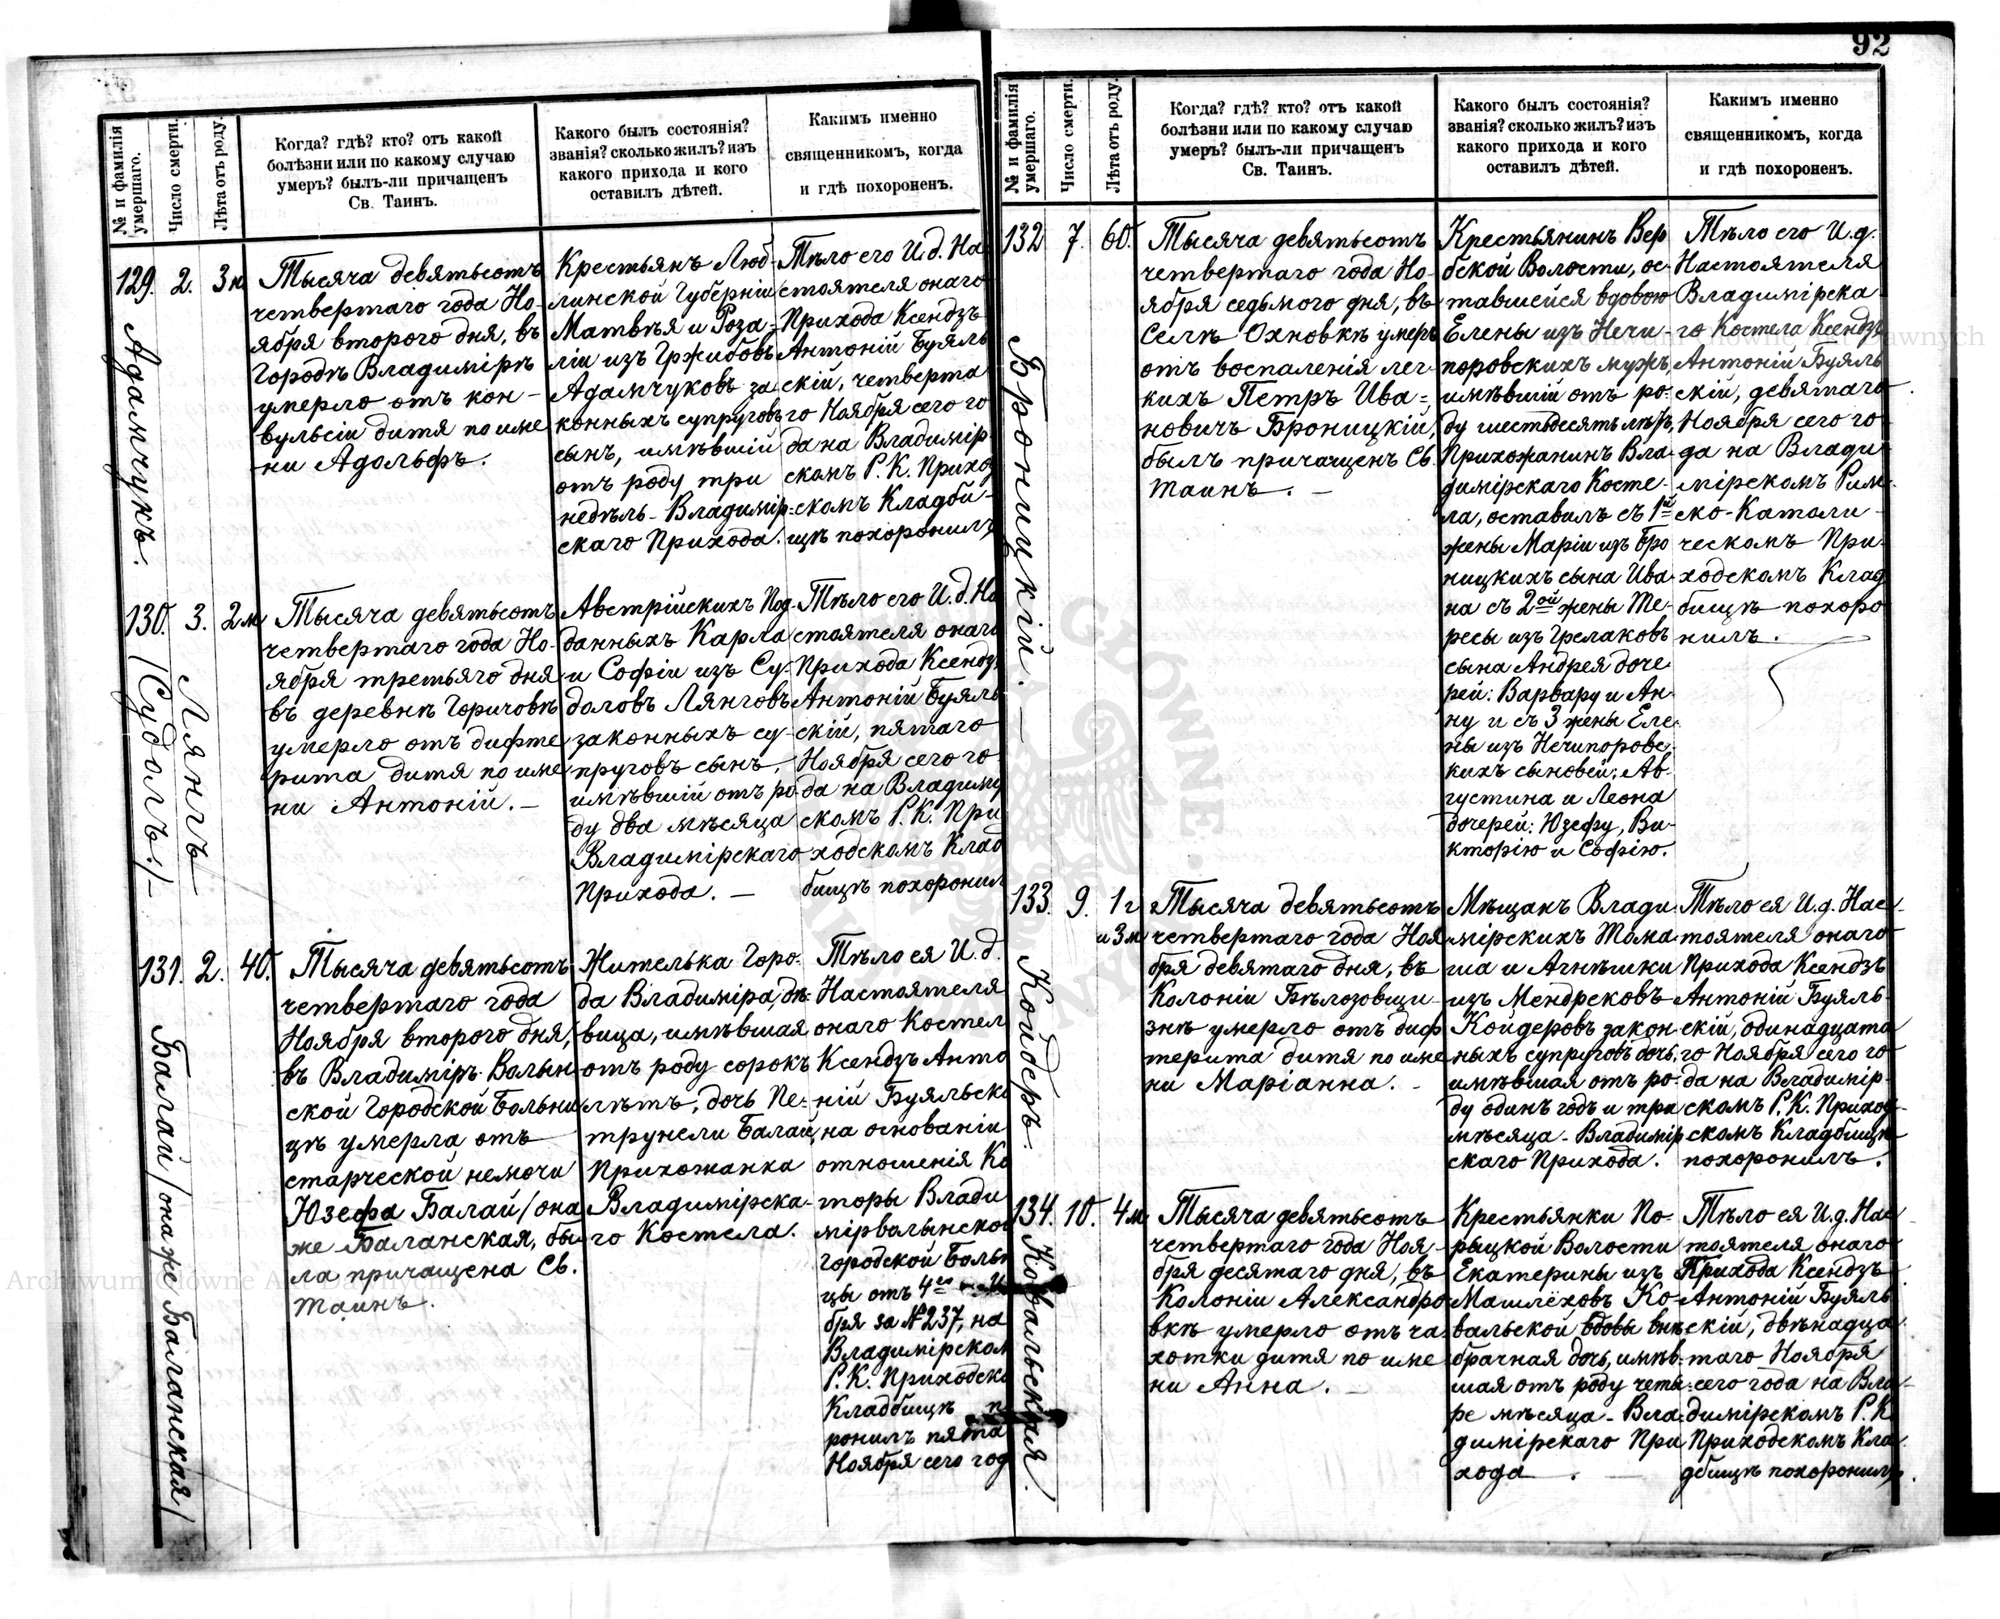 92
№ и фамилія умершаго.
Число смерти.
Лѣта отъ роду.
Когда? гдѣ? кто? отъ какой
болѣзни или по какому случаю
умеръ? былъ-ли причащенъ
Св. Таинъ.
Какого былъ состоянія?
званія? сколько жилъ? изъ
какого прихода и кого
оставилъ дѣтей.
Какимъ именно
священникомъ, когда
и гдѣ похороненъ.
129. Адамчукъ.
2.
3 н
Тысяча девятьсотъ
четвертаго года Но-
ября второго дня, въ
Городѣ Владимірѣ
умерло отъ кон-
вульсіи дитя по име
ни Адольфъ.
Крестьянъ Люб-
линской Губерніи
Матвѣя и Роза-
ліи изъ Гржибовъ
Адамчуковъ за-
конныхъ супруговъ
сынъ, имѣвшій
отъ роду три
недѣль - Владимір-
скаго Прихода.
Тѣло его И.д. На
стоятеля онаго
Прихода Ксендзъ
Антоній Буяль
скій, четверта
го Ноября сего го
да на Владимір
скомъ Р. К. Приход
скомъ Кладби-
щѣ похоронилъ
130. Лянгъ (Судолъ.)-
3.
2 м
Тысяча девятьсотъ
четвертаго года Но-
ября третьяго дня
въ деревнѣ Горичовѣ
умерло отъ дифте
рита дитя по име
ни Антоній. -
Австрійскихъ Под-
данныхъ Карла
и Софіи изъ Су-
доловъ Лянговъ
законныхъ су-
пруговъ сынъ,
имѣвшій отъ ро
ду два мѣсяца
Владимірскаго
Прихода. -
Тѣло его И.д. На
стоятеля онаго
Прихода Ксендзъ
Антоній Буяль
скій, пятаго
Ноября сего го
да на Владимір
скомъ Р. К. При
ходскомъ Клад
бищѣ похоронил
131. Балай (онаже Баланская)
2.
40.
Тысяча девятьсотъ
четвертаго года
Ноября второго дня,
въ Владимір-Волын
ской Городской Больни
цѣ умерла отъ
старческой немочи
Юзефа Балай (она
же Баланская, бы
ла причащена Св.
Таинъ.
Жителька Горо-
да Владиміра, дѣ-
вица, имѣвшая
отъ роду сорокъ
лѣтъ, дочь Пе-
трунели Балай,
Прихожанка
Владимірска-
го Костела.
Тѣло ея И.д.
Настоятеля
онаго Костел
Ксендзъ Анто
ній Буяльск
на основаніи
отношенія Ко
торы Влади
мірволынско
городской Больн
цы отъ 4го
бря за №237, на
Владимірском
Р. К. Приходск
Кладбищѣ п
ронилъ пята
Ноября сего год
№ и фамилія умершаго.
Число смерти.
Лѣта отъ роду.
Когда? гдѣ? кто? отъ какой
болѣзни или по какому случаю
умеръ? былъ-ли причащенъ
Св. Таинъ.
Какого былъ состоянія?
званія? сколько жилъ? изъ
какого прихода и кого
оставилъ дѣтей.
Какимъ именно
священникомъ, когда
и гдѣ похороненъ.
132 Броницкій. -
7.
60.
Тысяча девятьсотъ
четвертаго года Но-
ября седьмого дня, въ
Селѣ Охновкѣ умеръ
отъ воспаленія лег-
кихъ Петръ Ива-
новичъ Броницкій,
былъ причащенъ Св.
Таинъ. -
Крестьянинъ Вер
бской Волости, ос-
тавшейся вдовою
Елены изъ Нечи-
поровскихъ мужъ,
имѣвшій отъ ро-
ду шестьдесятъ лѣтъ,
Прихожанинъ Вла-
димірскаго Косте-
ла, оставилъ съ 1й
жены Маріи изъ Бро
ницкихъ сына Ива-
на съ 2ой жены Те-
ресы изъ Грелаковъ
сына Андрея доче
рей: Варвару и Ан-
ну и съ 3 жены Еле-
ны изъ Нечипоровс-
кихъ сыновей: Ав-
густина и Леона
дочерей: Юзефу, Ви-
кторію и Софію.
Тѣло его И.д.
Настоятеля
Владимірска-
го Костела Ксендзъ
Антоній Буяль
скій, девятаго
Ноября сего го
да на Влади-
мірскомъ Рим-
ско-Католи-
ческомъ При-
ходскомъ Клад
бищѣ похоро
нилъ.
133. Койдеръ.
9.
1 г
и 3 м
Тысяча девятьсотъ
четвертаго года Ноя
бря девятаго дня, въ
Колоніи Бѣлозовщи-
знѣ умерло отъ диф
терита дитя по име
ни Маріанна. -
Мѣщанъ Влади
мірскихъ Тома
ша и Агнѣшки
изъ Мендрековъ
Койдеровъ закон
ныхъ супруговъ дочь,
имѣвшая отъ ро-
ду одинъ годъ и три
мѣсяца - Владимір
скаго Прихода.
Тѣло ея И.д. Нас-
тоятеля онаго
Прихода Ксендзъ
Антоній Буяль-
скій, одинадцата
го Ноября сего го
да на Владимір-
скомъ Р.К. Приход-
скомъ Кладбищѣ
похоронилъ.
134. Ковальская.
10.
4 м
Тысяча девятьсотъ
четвертаго года Ноя-
бря десятаго дня, въ
Колоніи Александро
вкѣ умерло отъ ча
хотки дитя по име
ни Анна. -
Крестьянки По-
рыцкой Волости
Екатерины изъ
Машлёховъ Ко-
вальской вдовы внѣ
брачная дочь, имѣв-
шая отъ роду четы-
ре мѣсяца - Вла-
димірскаго При
хода.
Тѣло ея И.д. Нас
тоятеля онаго
Прихода Ксендзъ
Антоній Буяль
скій, двѣнадца
таго Ноября
сего года на Вла-
димірскомъ Р. К
Приходскомъ Кла
дбищѣ похоронилъ.
Archiwum Główne Akt Dawnych
Archiwum Główne Akt Dawnych